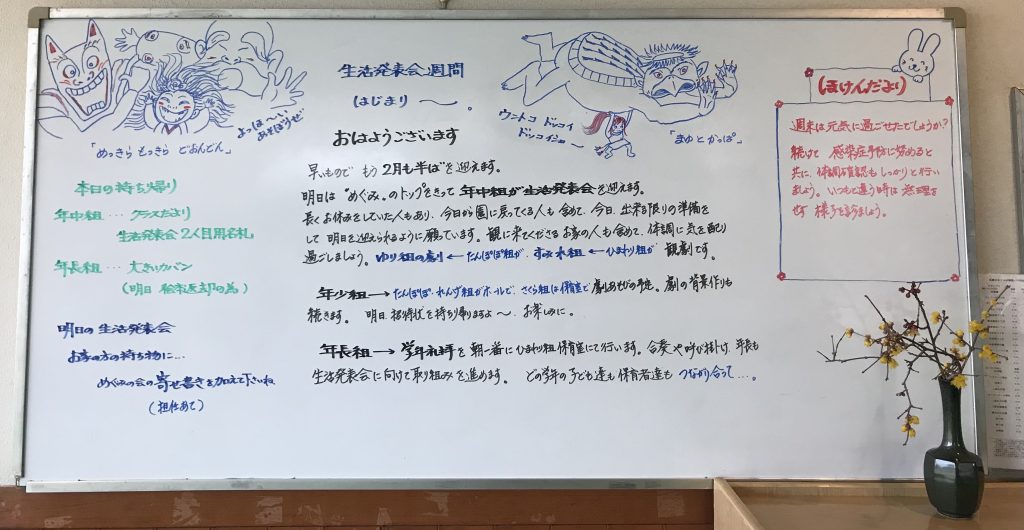 よっほーい
あそぼうぜ
「めっきら もっきら どおんどん」
本日の持ち帰り
年中組…クラスだより
生活発表会2人目用名札
年長組…大きいカバン
(明日 絵本返却の為)
明日の生活発表会
お家の方の持ち物に…
めぐみの会の寄せ書きを加えて下さいね
(担任あて)
生活発表会週間
はじまり〜。
おはようございます
早いもので もう2月も半ばを迎えます。
明日は"めぐみ。のトップをきって年中組が生活発表会を迎えます。
長くお休みをしていた人もあり、今日から園に戻ってくる人も含めて、今日、出来る限りの準備を
して明日を迎えられるように願っています。観に来てくださるお家の人も含めて、体調に気を配り
過ごしましょう。ゆり組の劇←たんぽぽ組が、すみれ組←ひまわり組が 観劇です。
年少組→たんぽぽ・れんげ組がホールで、さくら組は保育室で劇あそびの予定。劇の背景作りも
続きます。明日、招待状を持ち帰りますよ〜、お楽しみに。
年長組→学年礼拝を朝一番にひまわり組保育室にて行います。合奏や呼び掛け、年長も
生活発表会に向けて取り組みを進めます。どの学年の子ども達も保育者達もつながり合って…。
ウントコ ドッコイ
ドッコイショー
「まゆとかっぱ」
ほけんだより
週末は元気に過ごせたでしょうか?
続けて感染症予防に努めると
共に、体調確認もしっかりと行い
ましょう。いつもと違う時は無理を
せず様子をみましょう。